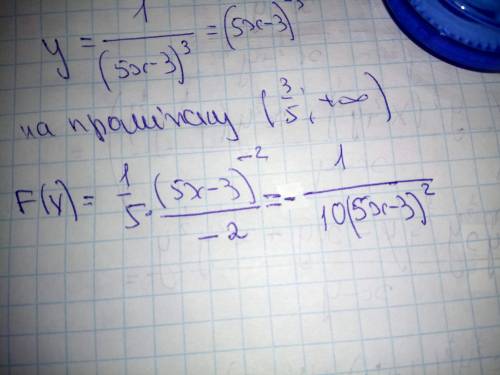 y = 1/(5x-3)³ = (5x-3)⁻³
на проміжку (3/5; +∞)
F(y) = 1/5 · (5x-3)⁻²/-2 = - 1/10(5x-3)²